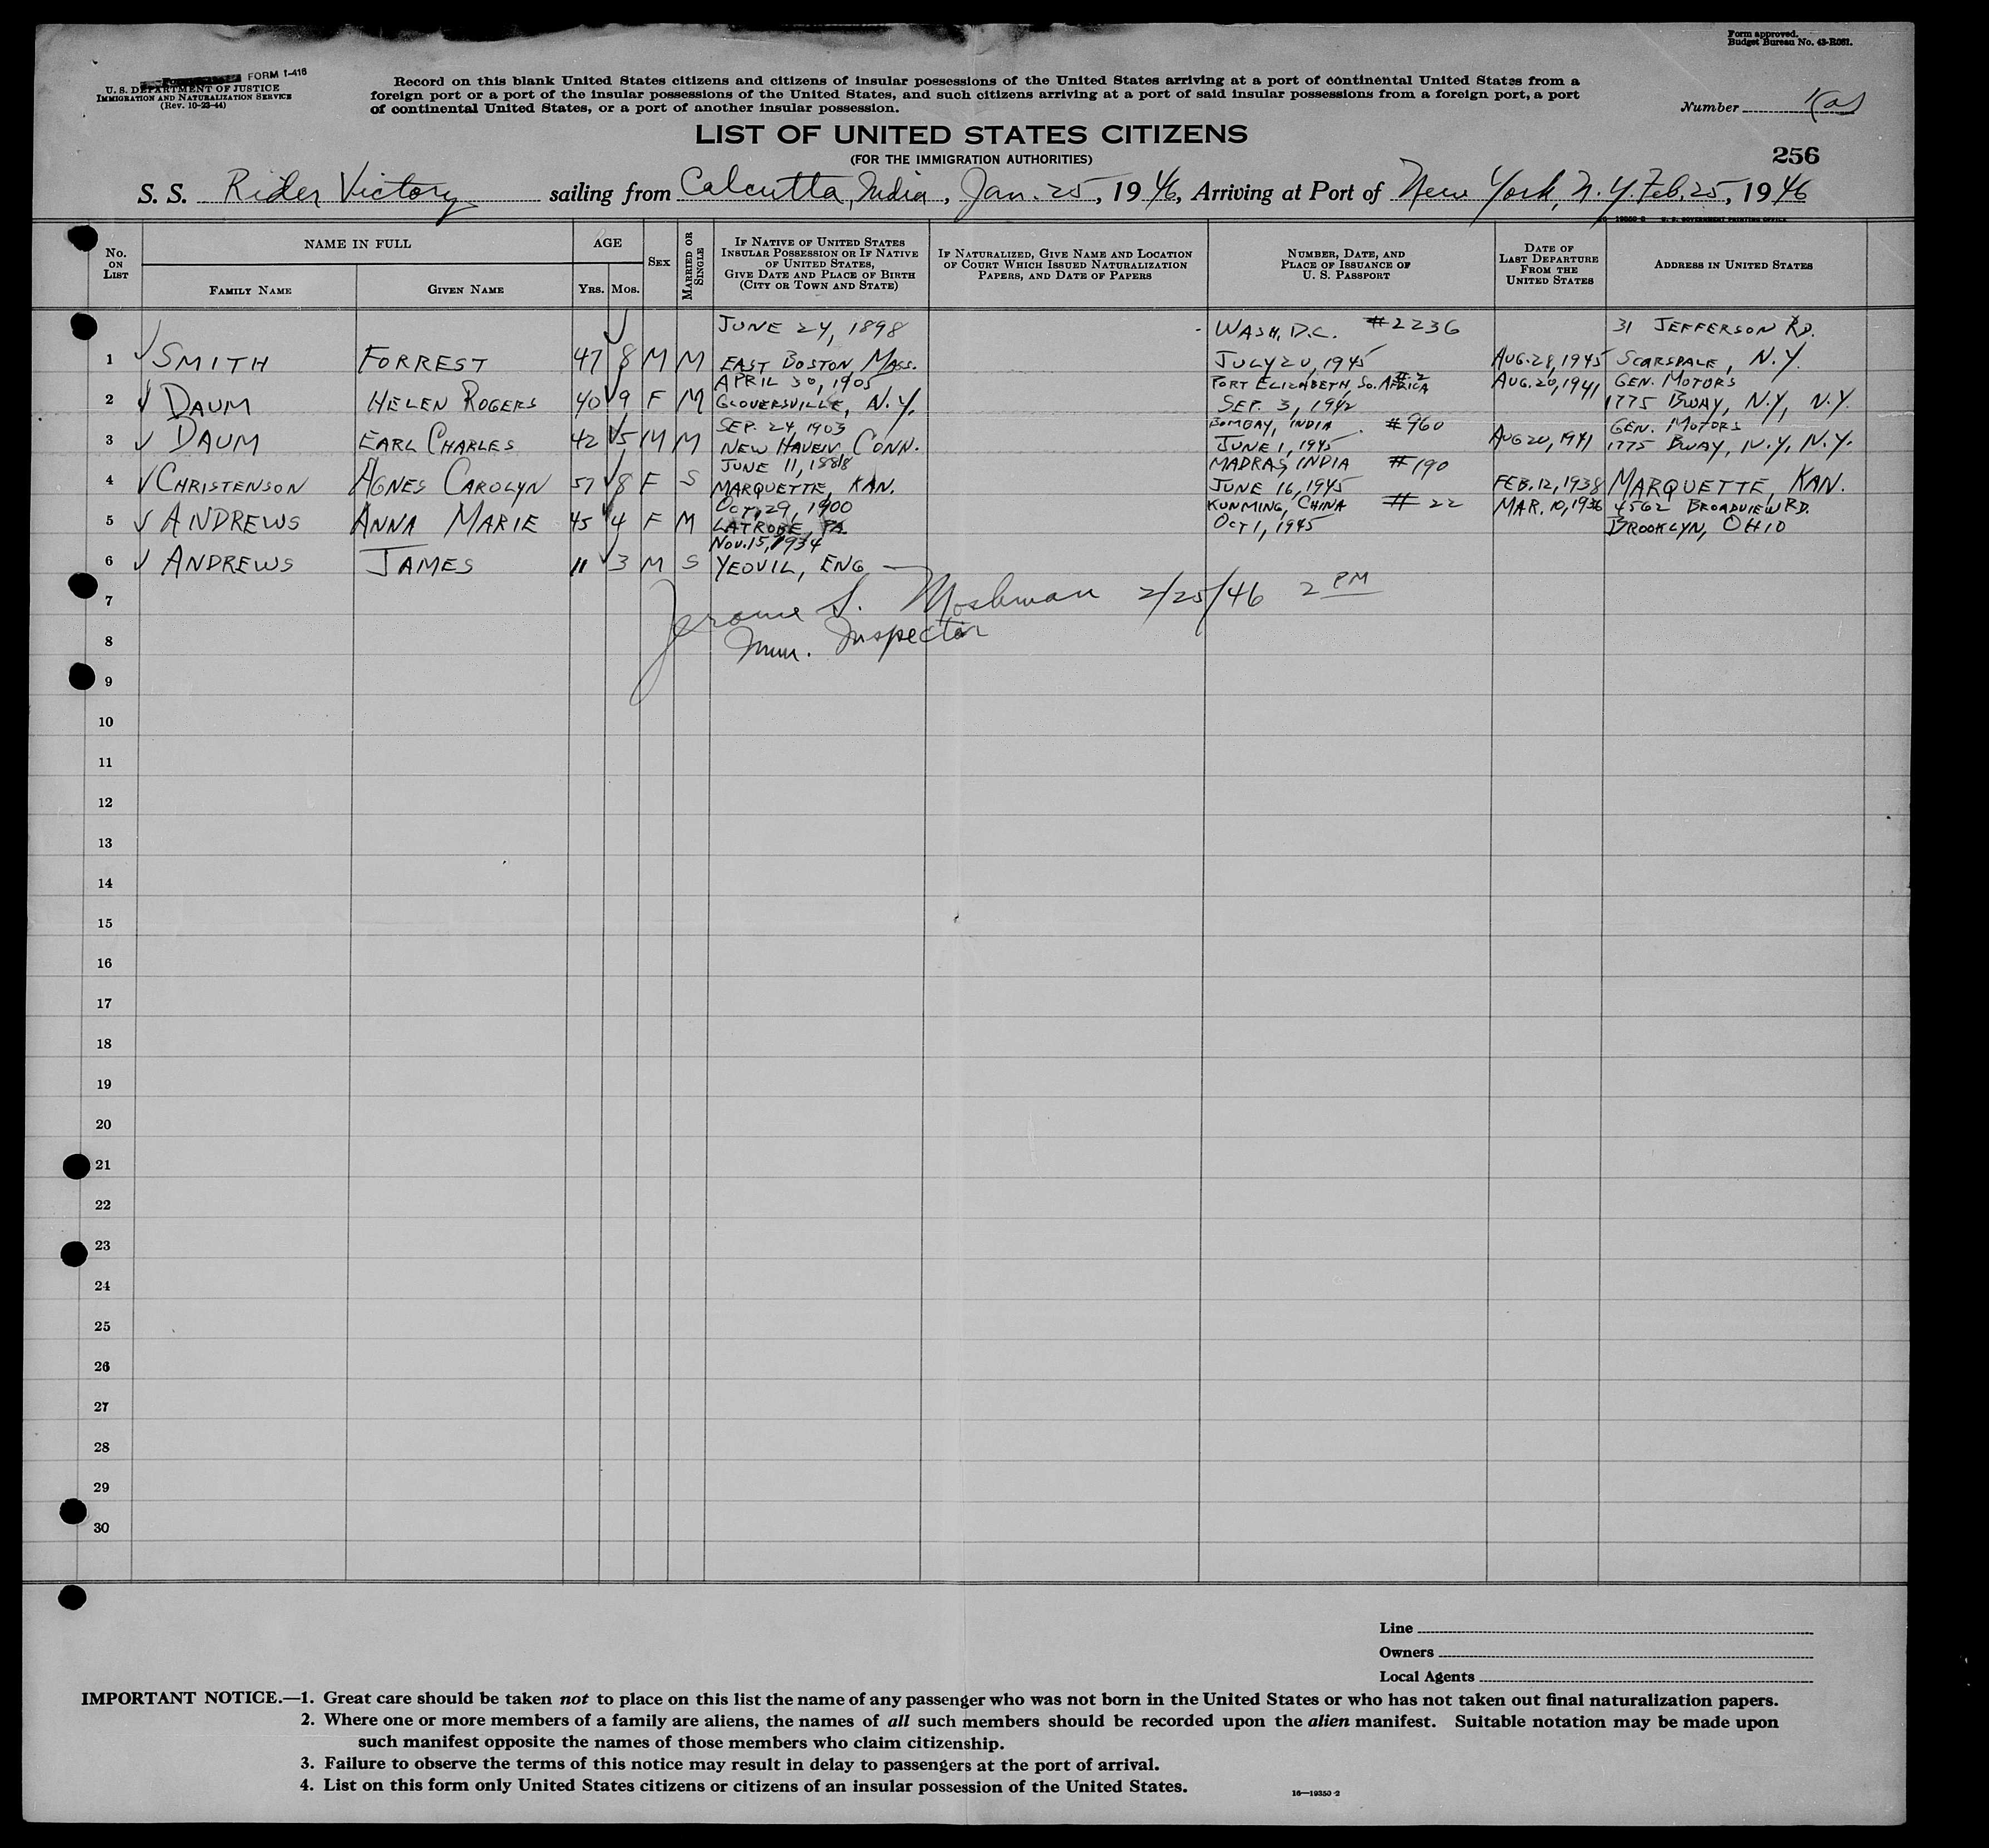 Form approved.
Budget Bureau No. 43-R061.
FORM I-416
U. S. DEPARTMENT OF JUSTICE
IMMIGRATION AND NATURALIZATION SERVICE
(Rev. 10-23-44)
Record on this blank United States citizens and citizens of insular possessions of the United States arriving at a port of continental United States from a
foreign port or a port of the insular possessions of the United States, and such citizens arriving at a port of said insular possessions from a foreign port, a port
of continental United States, or a port of another insular possession.
Number
LIST OF UNITED STATES CITIZENS
(FOR THE IMMIGRATION AUTHORITIES)
256
S. S. Rider Victory sailing from Calcutta, India, Jan. 25, 1946, Arriving at Port of New York, N.Y. Feb. 25, 1946
No. ON LIST
NAME IN FULL
FAMILY NAME GIVEN NAME
AGE
YRS. MOS.
SEX
MARRIED OR SINGLE
IF NATIVE OF UNITED STATES
INSULAR POSSESSION OR IF NATIVE
OF UNITED STATES,
GIVE DATE AND PLACE OF BIRTH
(CITY OR TOWN AND STATE)
IF NATURALIZED, GIVE NAME AND LOCATION
OF COURT WHICH ISSUED NATURALIZATION
PAPERS, AND DATE OF PAPERS
NUMBER, DATE, AND
PLACE OF ISSUANCE OF
U. S. PASSPORT
DATE OF
LAST DEPARTURE
FROM THE
UNITED STATES
ADDRESS IN UNITED STATES
JUNE 24, 1898 WASH, D.C. #2236 31 JEFFERSON RD.
1 SMITH FORREST 47 8 M M EAST BOSTON MASS. JULY 20, 1945 AUG. 28, 1945 SCARSDALE, N.Y.
APRIL 30, 1905 PORT ELIZABETH, SO. AFRICA #2 AUG. 20, 1941 GEN. MOTORS
2 DAUM HELEN ROGERS 40 9 F M GLOVERSVILLE, N.Y. SEP. 3, 1942 1775 BWAY, N.Y., N.Y.
SEP. 24, 1903 BOMBAY, INDIA #960 GEN. MOTORS
3 DAUM EARL CHARLES 42 5 M M NEW HAVEN CONN. JUNE 1, 1945 AUG 20, 1941 1775 BWAY, N.Y., N.Y.
JUNE 11, 1888 MADRAS, INDIA #190
4 CHRISTENSON AGNES CAROLYN 57 8 F S MARQUETTE, KAN. JUNE 16, 1945 FEB. 12, 1938 MARQUETTE, KAN.
OCT. 29, 1900 KUNMING, CHINA # 22 MAR. 10, 1936 4562 BROADVIEW RD.
5 ANDREWS ANNA MARIE 45 4 F M LATROBE, PA. OCT 1, 1945 BROOKLYN, OHIO
NOV. 15, 1934
6 ANDREWS JAMES 11 3 M S YEOVIL, ENG
7
Jerome S. Moshman 2/25/46 2 PM
8
Imm. Inspector
9
10
11
12
13
14
15
16
17
18
19
20
21
22
23
24
25
26
27
28
29
30
Line
Owners
Local Agents
IMPORTANT NOTICE.—1. Great care should be taken not to place on this list the name of any passenger who was not born in the United States or who has not taken out final naturalization papers.
2. Where one or more members of a family are aliens, the names of all such members should be recorded upon the alien manifest. Suitable notation may be made upon
such manifest opposite the names of those members who claim citizenship.
3. Failure to observe the terms of this notice may result in delay to passengers at the port of arrival.
4. List on this form only United States citizens or citizens of an insular possession of the United States.
16—19350-2